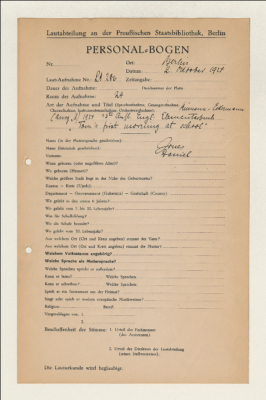 Lautabteilung an der Preußischen Staatsbibliothek, Berlin
PERSONAL-BOGEN
Nr. Ort: Berlin
Datum: 2. Oktober 1928
Laut-Aufnahme Nr.: LA Zeitangabe:
Dauer der Aufnahme: Durchmesser der Platte
Raum der Aufnahme: LA
Art der Aufnahme und Titel
12te Aufl. Engl. Elementarbuch
"Tom's first morning at school"
Name (in der Muttersprache geschrieben): Jones
Name (lateinisch geschrieben):
Vorname: Daniel
Wann geboren (oder ungefähres Alter)?
Wo geboren (Heimat)?
Welche größere Stadt liegt in der Nähe des Geburtsortes?
Kanton — Kreis (Ujedz)
Departement — Gouvernement (Gubernija) — Grafschaft (County)
Wo gelebt in den ersten 6 Jahren?
Wo gelebt vom 7. bis 20. Lebensjahr?
Was für Schulbildung?
Wo die Schule besucht?
Wo gelebt vom 20. Lebensjahr?
Aus welchem Ort (Ort und Kreis angeben) stammt der Vater?
Aus welchem Ort (Ort und Kreis angeben) stammt die Mutter?
Welchem Volksstamm angehörig?
Welche Sprache als Muttersprache?
Welche Sprachen spricht er außerdem?
Kann er lesen? Welche Sprachen?
Kann er schreiben? Welche Sprachen?
Spielt er ein Instrument aus der Heimat?
Singt oder spielt er modern europäische Musikweisen?
Religion: Beruf:
Vorgeschlagen von: 1.
2.
Beschaffenheit der Stimme: 1. Urteil des Fachmannes
(des Assistenten)
2. Urteil des Direktors der Lautabteilung
(seines Stellvertreters)
Die Lauturkunde wird beglaubigt: